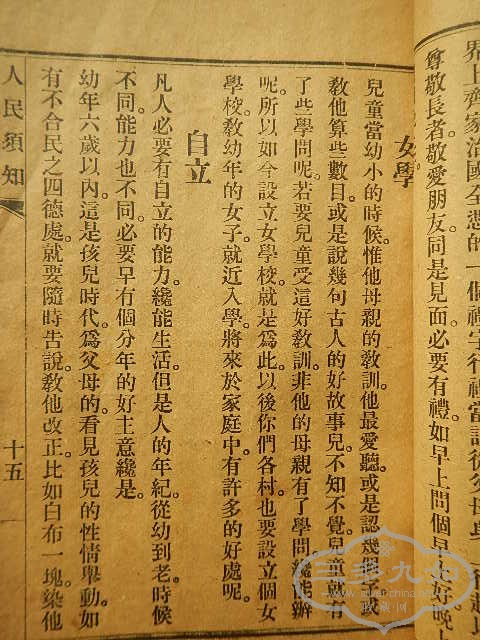 界上齊家治國全憑的一個禮字行禮當
尊敬長者敬愛朋友同是見面必要有禮如早上問個早安好晚上
女學
兒童當幼小的時候惟他母親的教訓他最愛聽或是認幾
教他算些數目或是說幾句古人的好故事兒不知不覺兒童就有
了些學問呢若要兒童受這好教訓非他的母親有了學問纔能辦
呢所以如今設立女學校就是爲此以後你們各村也要設立個女
學校教幼年的女子就近入學將來於家庭中有許多的好處呢
自立
凡人必要有自立的能力纔能生活但是人的年紀從幼到老時候
不同能力也不同必要早有個分年的好主意纔是
幼年六歲以內這是孩兒時代爲父母的看見孩兒的性情舉動如
有不合民之四德處就要隨時告說教他改正比如白布一塊染他
人民須知
十五
三多九如
www.silverchina.net
收藏网